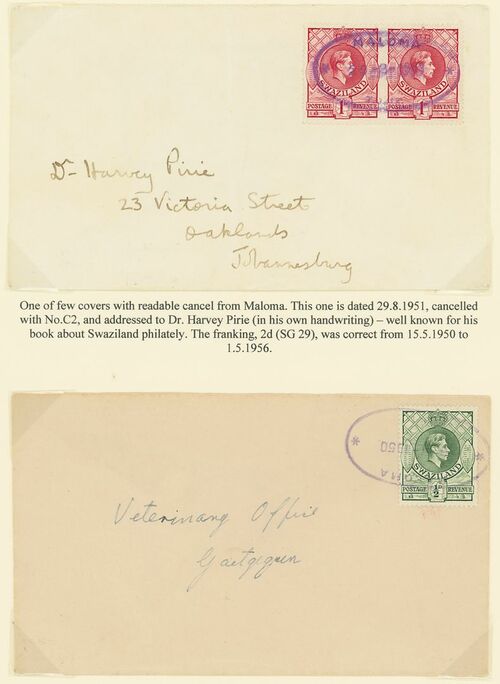 MALOMA
SWAZILAND SWAZILAND
POSTAGE REVENUE POSTAGE REVENUE
1D 1D
Dr Harvey Pirie
23 Victoria Street
Oaklands
Johannesburg
One of few covers with readable cancel from Maloma. This one is dated 29.8.1951, cancelled
with No.C2, and addressed to Dr. Harvey Pirie (in his own handwriting) – well known for his
book about Swaziland philately. The franking, 2d (SG 29), was correct from 15.5.1950 to
1.5.1956.
1950
SWAZILAND
POSTAGE REVENUE
½D
Veterinary Office